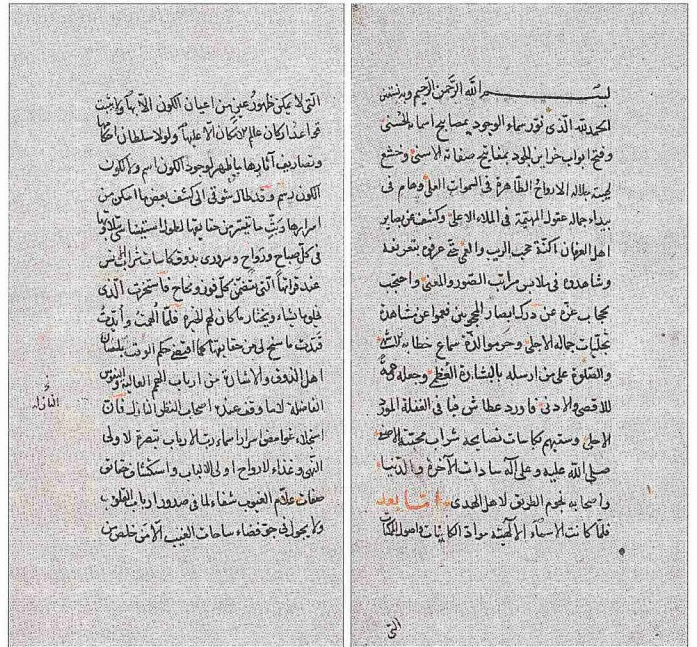 بسم الله الرحمن الرحيم وبه نستعين
الحمد لله الذى نور سماء الوجود بمصابيح اسمائه الحسنى
وفتح ابواب خزاين الجود بمفاتيح صفاته الاسنى وخشع
جلاله الارواح الطاهرة فى السموات العلى وهام فى
بيداء جماله عقول المهيمة فى الملاء الاعلى وكشف عن بصاير
اهل العرفان اكنة حجب الريب والغى حتى عرفوه بتعريفه
وشاهدوه فى ملابس مراتب الصور والمعنى واحتجب
بحجاب عزه عن درك ابصار المحجوبين فعموا عن مشاهدة
تجليات جماله الاجلى وحرموا لذة سماع خطابه
والصلوة على من ارسله بالبشارة العظمى وجعله رحمة
للاقصى والادنى فاورد عطاش فيافى الغفلة المورد
الاحلى وسقيهم بكاسات نصايحه شراب محبته
صلى الله عليه وعلى آله سادات الآخرة والدنيا
واصحابه نجوم الطريق لاهل الهدى اما بعد
فلما كانت الاسماء الالهية مواد الكاينات واصول
التى
التى لا يمكن ظهور عين من اعيان الكون الا بها ولا يثبت
قواعد اركان عالم الا عليها ولولا سلطان احكامها
وتصاريف آثارها لم يظهر لوجود الكون اسم ولا لكون
الكون رسم وقد طال شوقى الى كشف بعض ما امكن من
اسرارها ما تيسر من حقايقها
فى كل صباح ورواح وسرورى بذوق كاسات شراب
عند قرائها التى كل نور ونجاح فاستخرت الذى
يخلق ما يشاء ويختار ما كان لهم الخيرة فلما الهمت وأيدت
قيدت ما سنح لى من حقايقها كما اقتضى حكم الوقت بلسان
اهل الذوق والاشارة من ارباب الهمم العالية
الفاضلة لا ما وقف عنده اصحاب النظر النازلة فان
استجلاء غوامض اسرار اسماء رب الارباب تبصرة لاولى
النهى وغذاء لارواح اولى الالباب واستكشاف حقايق
صفات علام الغيوب شفاء لما فى صدور ارباب القلوب
ولا يجول فى جو فضاء ساحات الغيب الا من خلص من